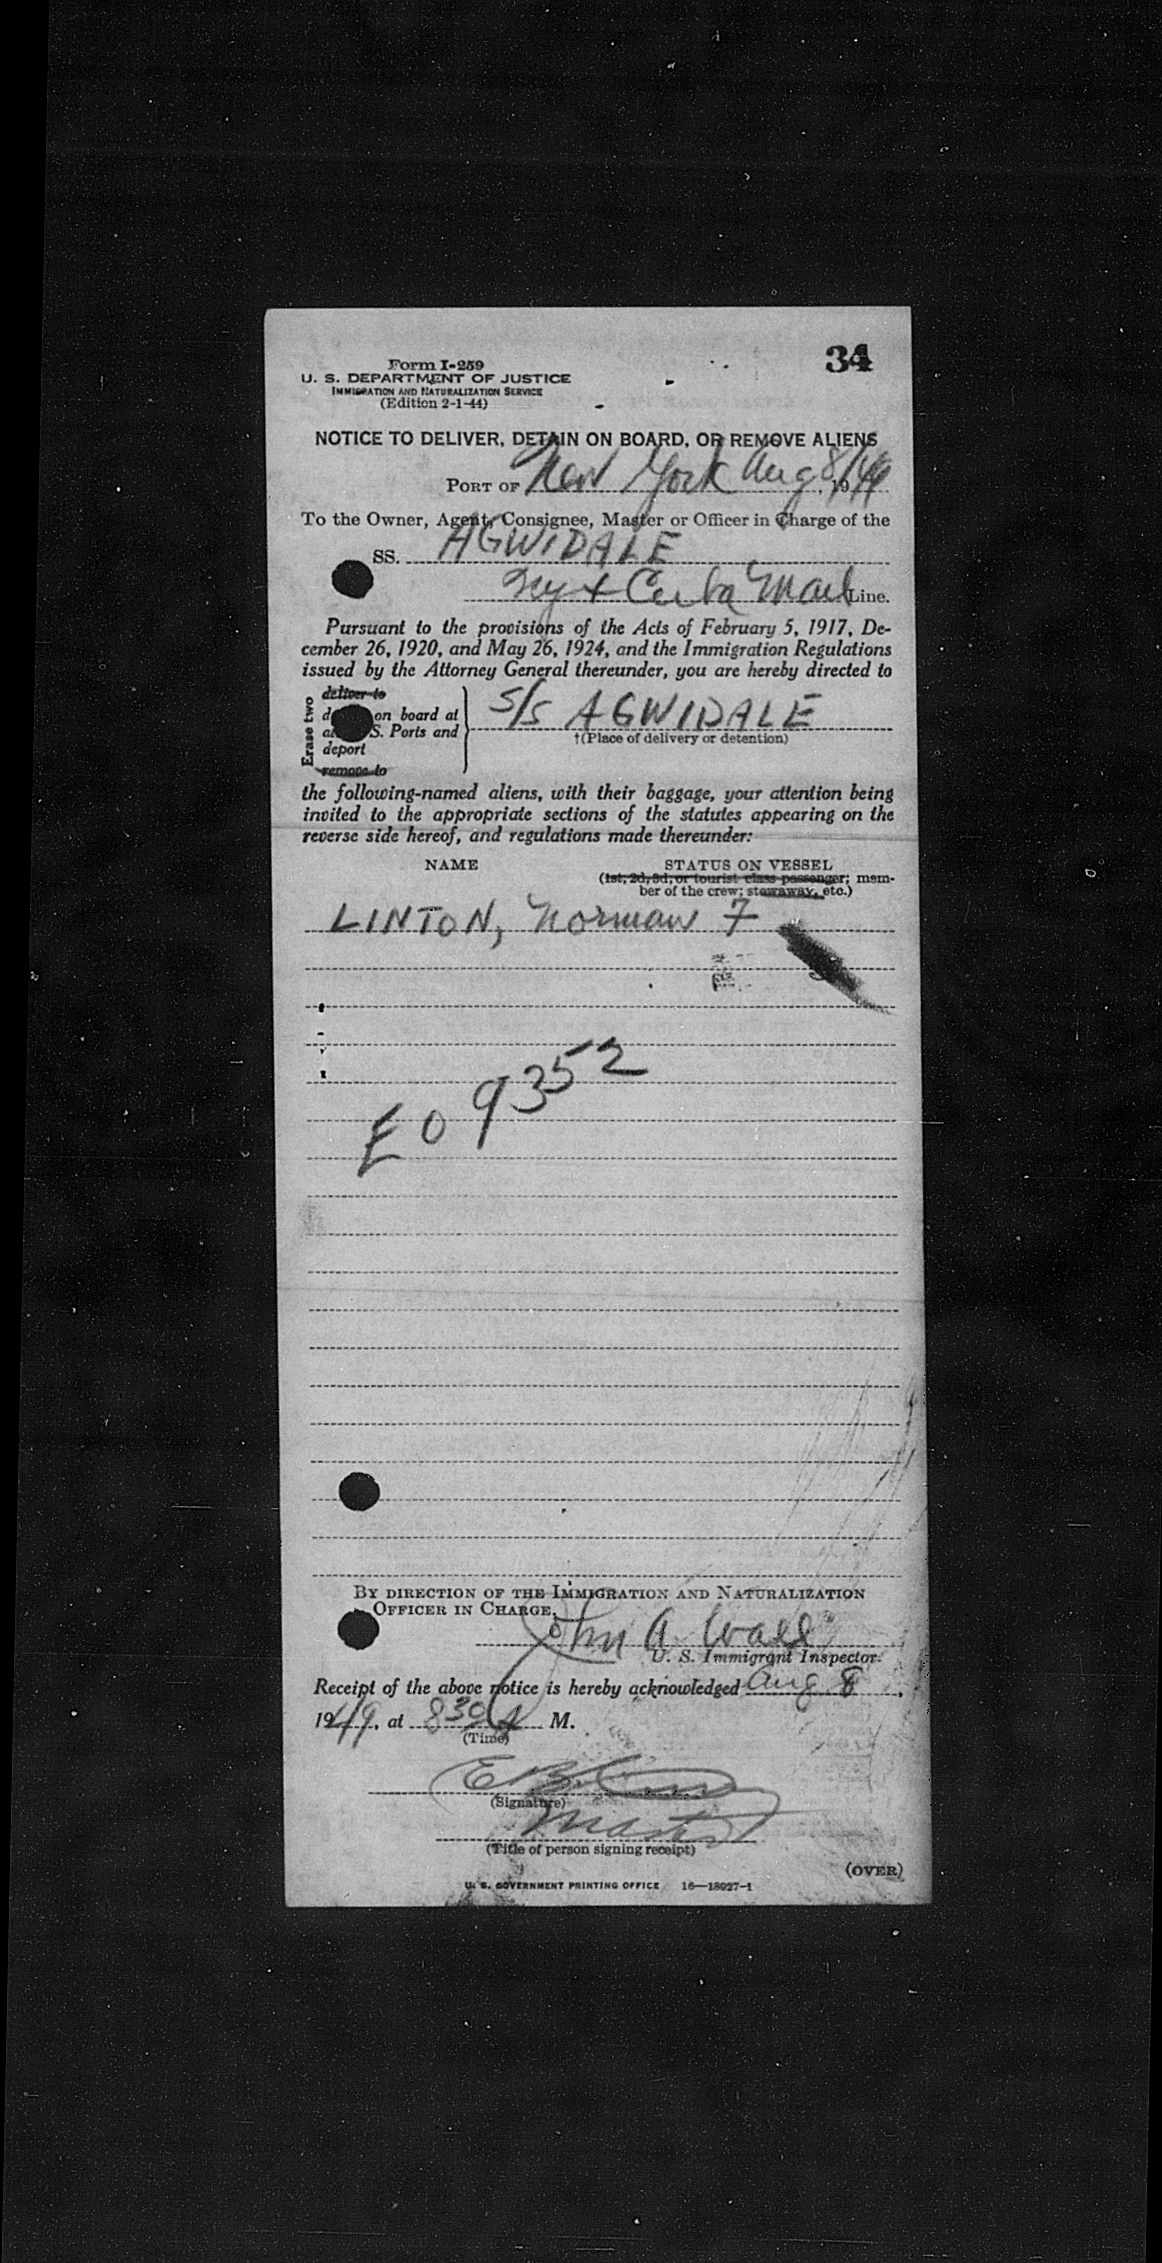 34
Form I-259
U. S. DEPARTMENT OF JUSTICE
IMMIGRATION AND NATURALIZATION SERVICE
(Edition 2-1-44)
NOTICE TO DELIVER, DETAIN ON BOARD, OR REMOVE ALIENS
PORT OF New York Aug 8/49, 19
To the Owner, Agent, Consignee, Master or Officer in Charge of the
SS. AGWIDALE
Ny + Cuba Mail Line.
Pursuant to the provisions of the Acts of February 5, 1917, De-
cember 26, 1920, and May 26, 1924, and the Immigration Regulations
issued by the Attorney General thereunder, you are hereby directed to
Erase two
deliver to
on board at
S. Ports and
deport
remove to
S/S AGWIDALE
†(Place of delivery or detention)
the following-named aliens, with their baggage, your attention being
invited to the appropriate sections of the statutes appearing on the
reverse side hereof, and regulations made thereunder:
NAME STATUS ON VESSEL
(1st, 2d, 3d, or tourist class passenger; mem-
ber of the crew; stowaway, etc.)
LINTON, Norman 7
E09352
BY DIRECTION OF THE IMMIGRATION AND NATURALIZATION
OFFICER IN CHARGE.
John A. Wall
U. S. Immigrant Inspector.
Receipt of the above notice is hereby acknowledged Aug 8,
1949, at 8 30 A M.
(Time)
(Signature)
Master
(Title of person signing receipt)
(OVER)
U. S. GOVERNMENT PRINTING OFFICE 16—18027-1